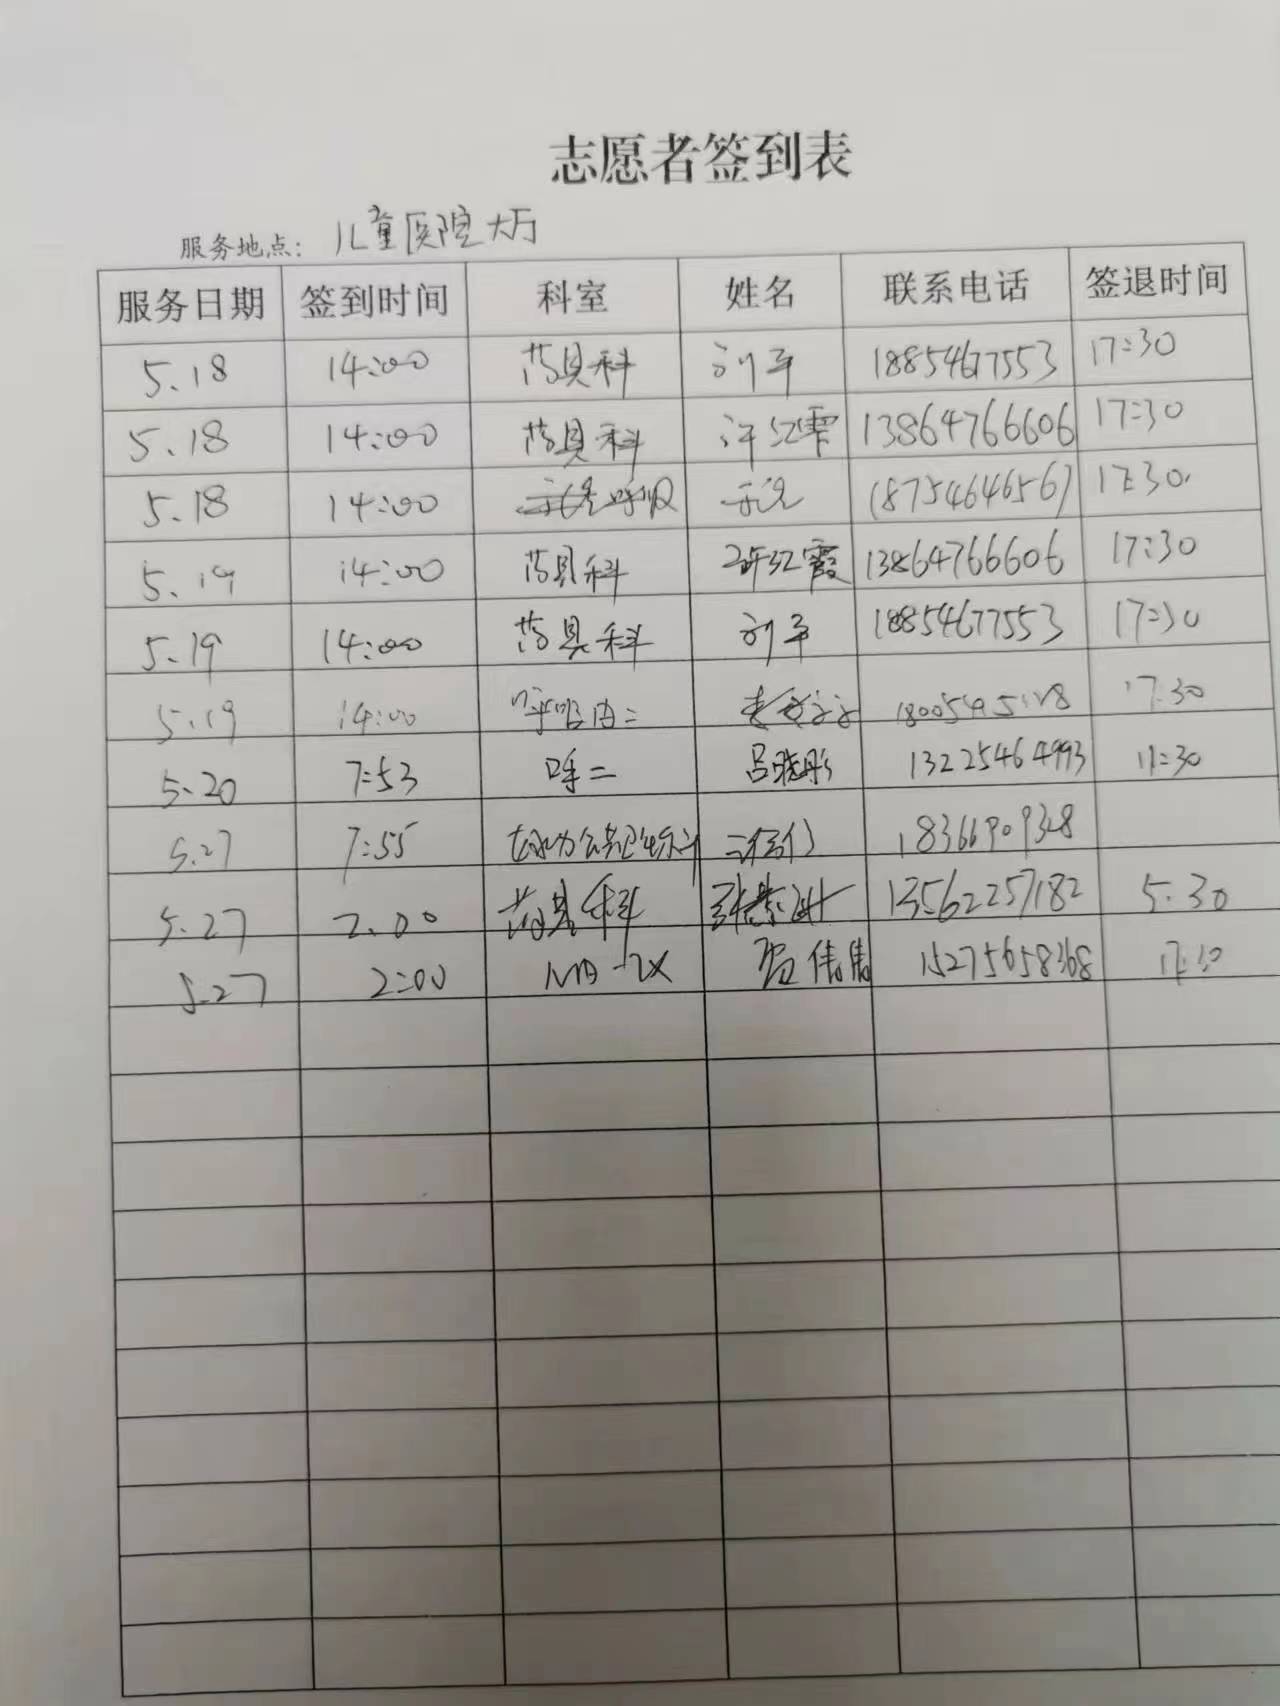 志愿者签到表
服务地点: 儿童医院大厅
服务日期 签到时间 科室 姓名 联系电话 签退时间
5.18 14:00 药具科 刘平 18854677553 17:30
5.18 14:00 药具科 许红霞 13864766606 17:30
5.18 14:00 呼吸 18754646561 17:30
5.19 14:00 药具科 许红霞 13864766606 17:30
5.19 14:00 药具科 刘平 18854677553 17:30
5.19 14:00 呼吸内二 17:30
5.20 7:53 呼二 吕晓彤 13225464993 11:30
5.27 7:55 18366909328
5.27 2:00 药具科 13562257182 5:30
5.27 2:00 15275658368 17:30